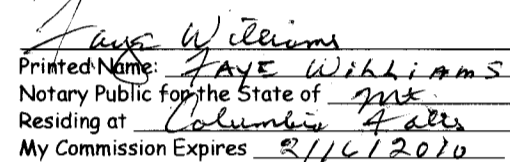 Faye Williams
Printed Name: FAYE WilliAmS
Notary Public for the State of Mt.
Residing at Columbia Falls
My Commission Expires 2/16/2010